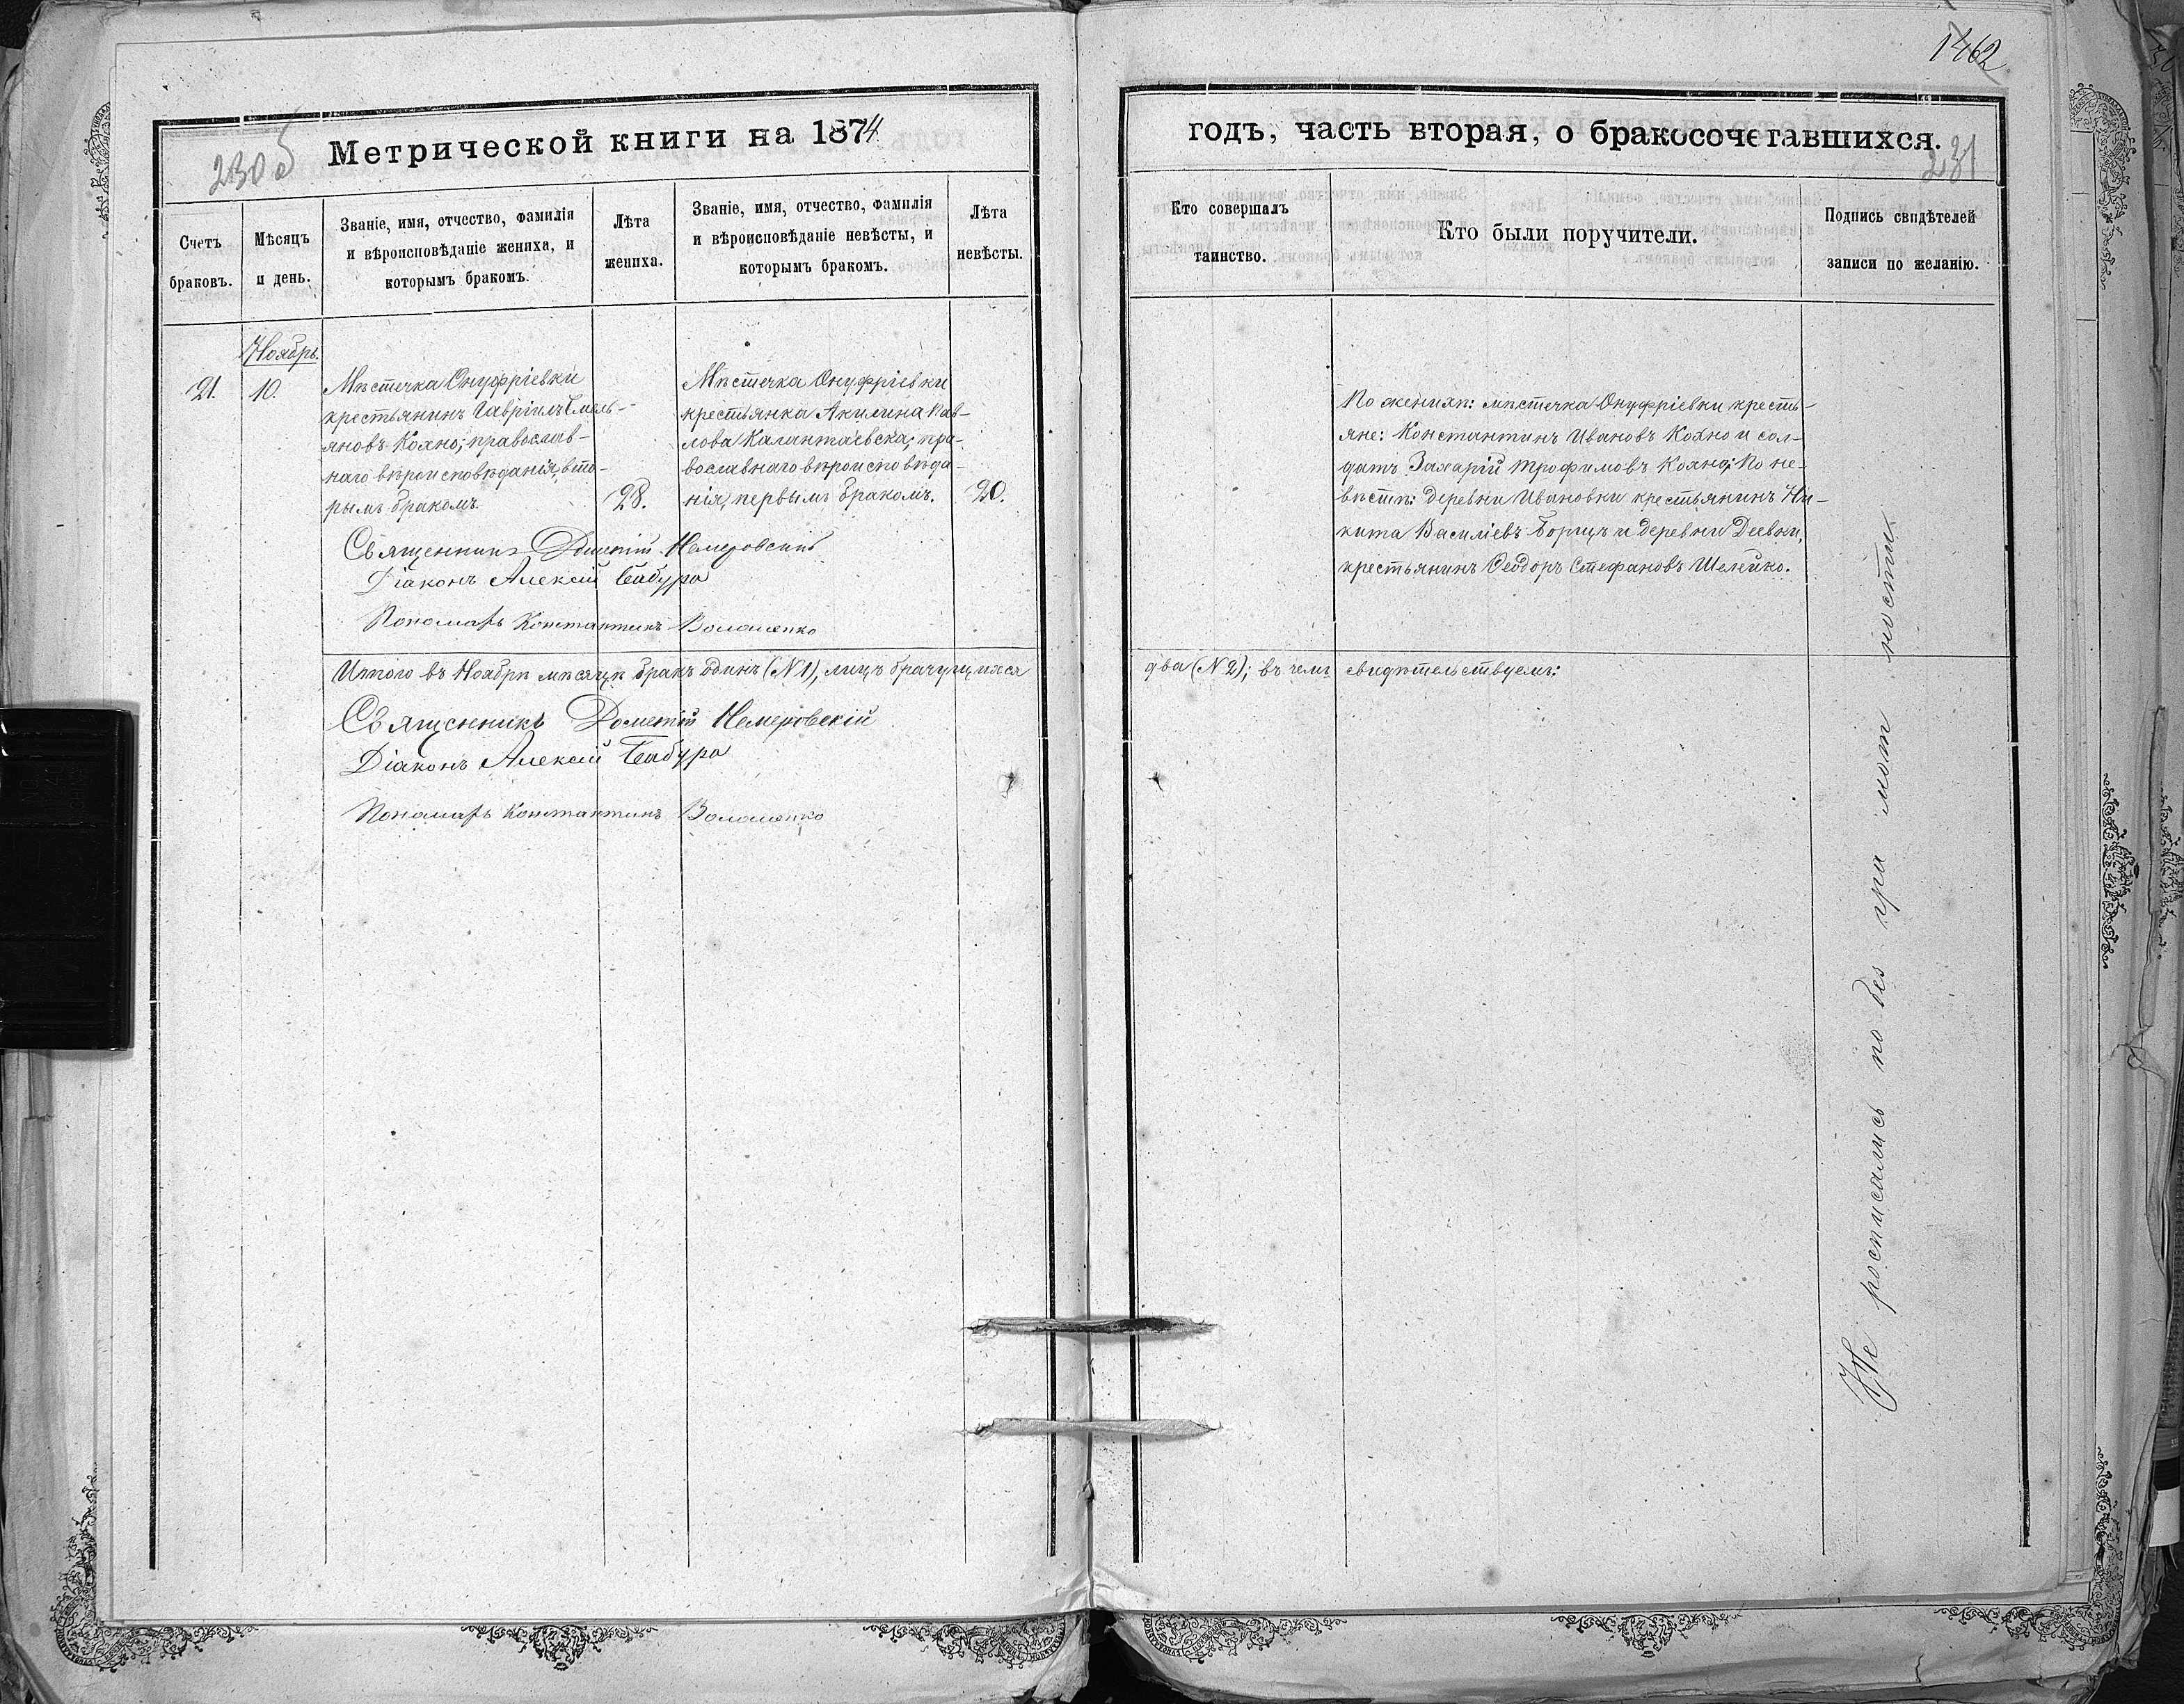 1462
230об
231
Метрической книги на 1874
годъ, часть вторая, о бракосочетавшихся.
Счетъ
браковъ.
Мѣсяцъ
и день.
Званіе, имя, отчество, фамилія
и вѣроисповѣданіе жениха, и
которымъ бракомъ.
Лѣта
жениха.
Званіе, имя, отчество, фамилія
и вѣроисповѣданіе невѣсты, и
которымъ бракомъ.
Лѣта
невѣсты.
Кто совершалъ
таинство.
Кто были поручители.
Подпись свидѣтелей
записи по желанію.
Ноябрь.
21.
10.
Мѣстечка Онуфріевки
крестьянинъ Гавріилъ Емель-
яновъ Кохно, православ-
наго вѣроисповѣданія, вто-
рымъ бракомъ.
28.
Мѣстечка Онуфріевки
крестьянка Акилина Пав-
лова Калантаевска, пра-
вославнаго вѣроисповѣда-
нія, первымъ бракомъ.
20.
По женихѣ: мѣстечка Онуфріевки кресть-
яне: Константинъ Ивановъ Кохно и сол-
датъ Захарій Трофимовъ Кохно; По не-
вѣстѣ: деревни Ивановки крестьянинъ Ни-
кита Василіевъ Борщъ и деревни Деевки,
крестьянинъ Ѳеодоръ Стефановъ Шелейко.
Священникъ Дометій Немеровскій
Діаконъ Алексій Бабура
Пономарь Константинъ Волошенко
Итого въ Ноябрѣ мѣсяцѣ бракъ одинъ (№ 1), лицъ брачущихся
два (№ 2); въ чемъ свидѣтельствуемъ:
Священникъ Дометій Немеровскій
Діаконъ Алексій Бабура
Пономарь Константинъ Волошенко
Не росписались по безграмотности